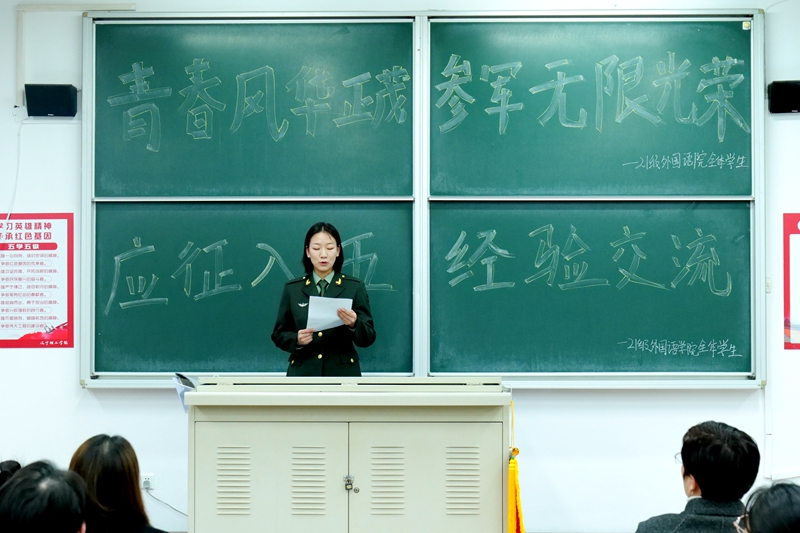 青春风华正茂
参军无限光荣
—21级外国语院全体学生
应征入伍
经验交流
—21级外国语学院全体学生
学习英雄精神
承红色基因
五学五做